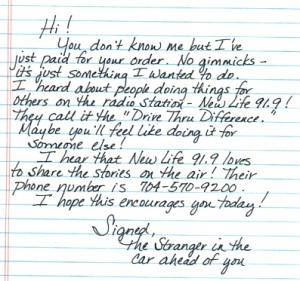 Hi!
You don't know me but I've
just paid for your order. No gimmicks -
it's just something I wanted to do.
I heard about people doing things for
others on the radio station - New Life 91.9!
They call it the "Drive Thru Difference."
Maybe you'll feel like doing it for
someone else!
I hear that New Life 91.9 loves
to share the stories on the air! Their
phone number is 704-570-9200.
I hope this encourages you today!
Signed,
the Stranger in the
car ahead of you